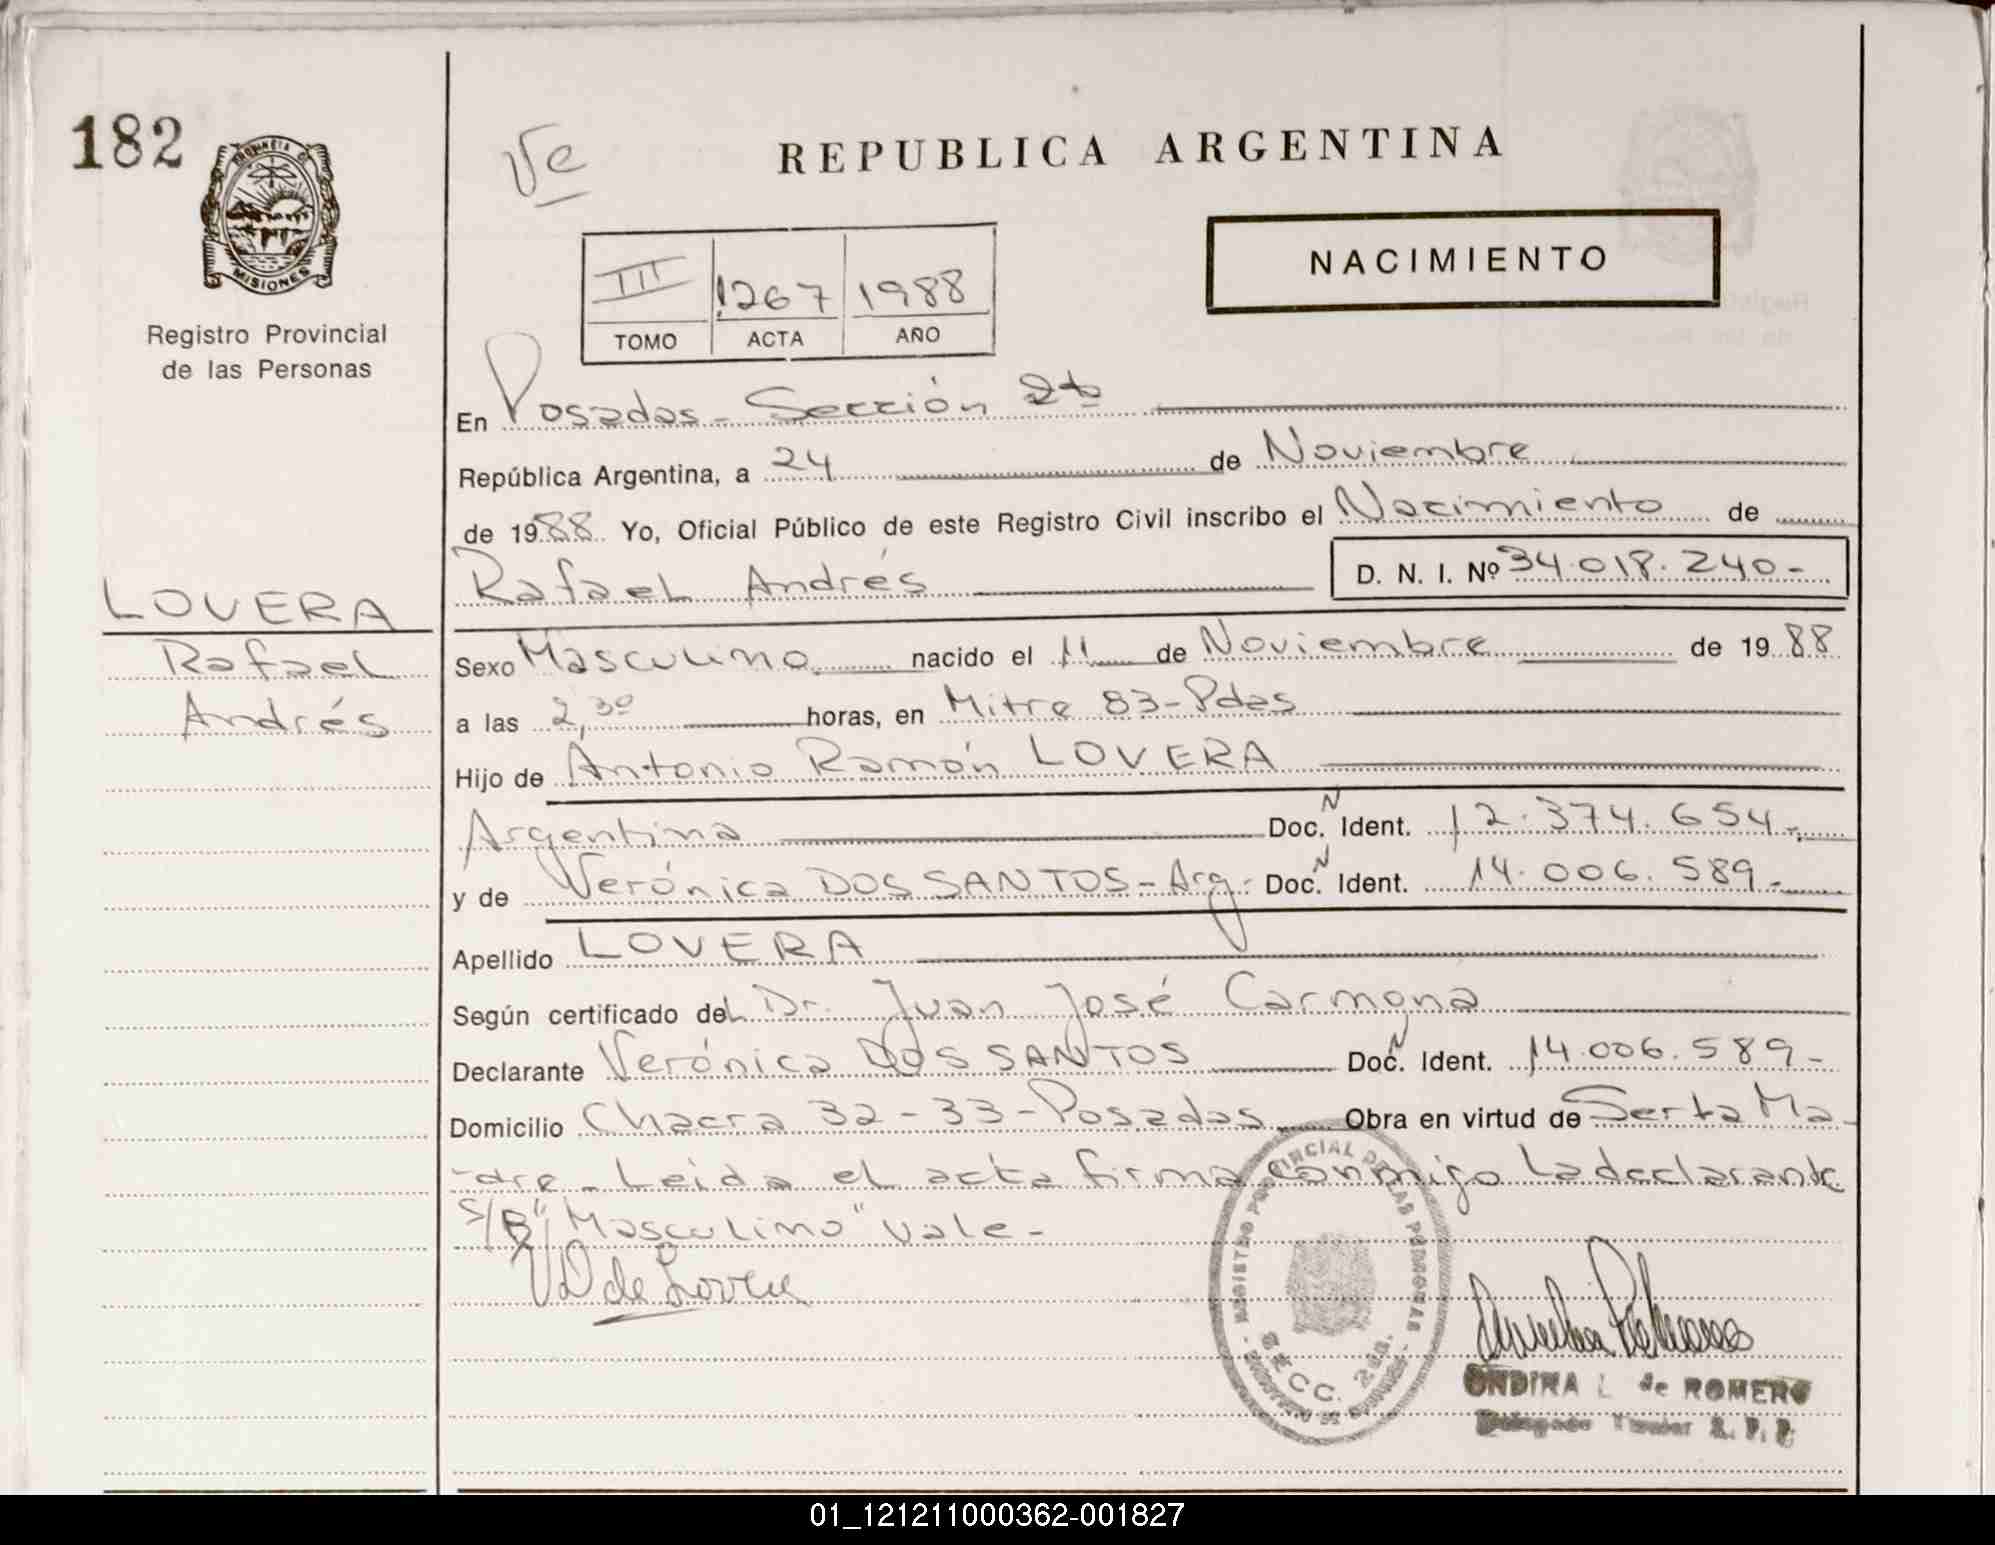 182
PROVINCIA D
MISIONES
Registro Provincial
de las Personas
REPUBLICA ARGENTINA
NACIMIENTO
III 1267 1988
TOMO ACTA AÑO
En Posadas - Sección 2da
República Argentina, a 24 de Noviembre
de 1988 Yo, Oficial Público de este Registro Civil inscribo el Nacimiento de
Rafael Andrés D. N. I. Nº 34.018.240-
LOVERA
Rafael
Andrés
Sexo Masculino nacido el 11 de Noviembre de 1988
a las 2,30 horas, en Mitre 83-Pdas
Hijo de Antonio Ramón LOVERA
Argentina Doc. N Ident. 12.374.654-
y de Verónica DOS SANTOS - Arg. Doc. N Ident. 14.006.589-
Apellido LOVERA
Según certificado del Dr. Juan José Carmona
Declarante Verónica DOS SANTOS Doc. N Ident. 14.006.589-
Domicilio Chacra 32-33-Posadas Obra en virtud de Ser la Ma-
-dre - Leida el acta firma conmigo la declarante
S/B "Masculino" vale-
VD de Lovera
REGISTRO PROVINCIAL DE LAS PERSONAS
SECC. 2da.
ONDINA L. de ROMERO
Delegado Titular R. P. P.
01_121211000362-001827